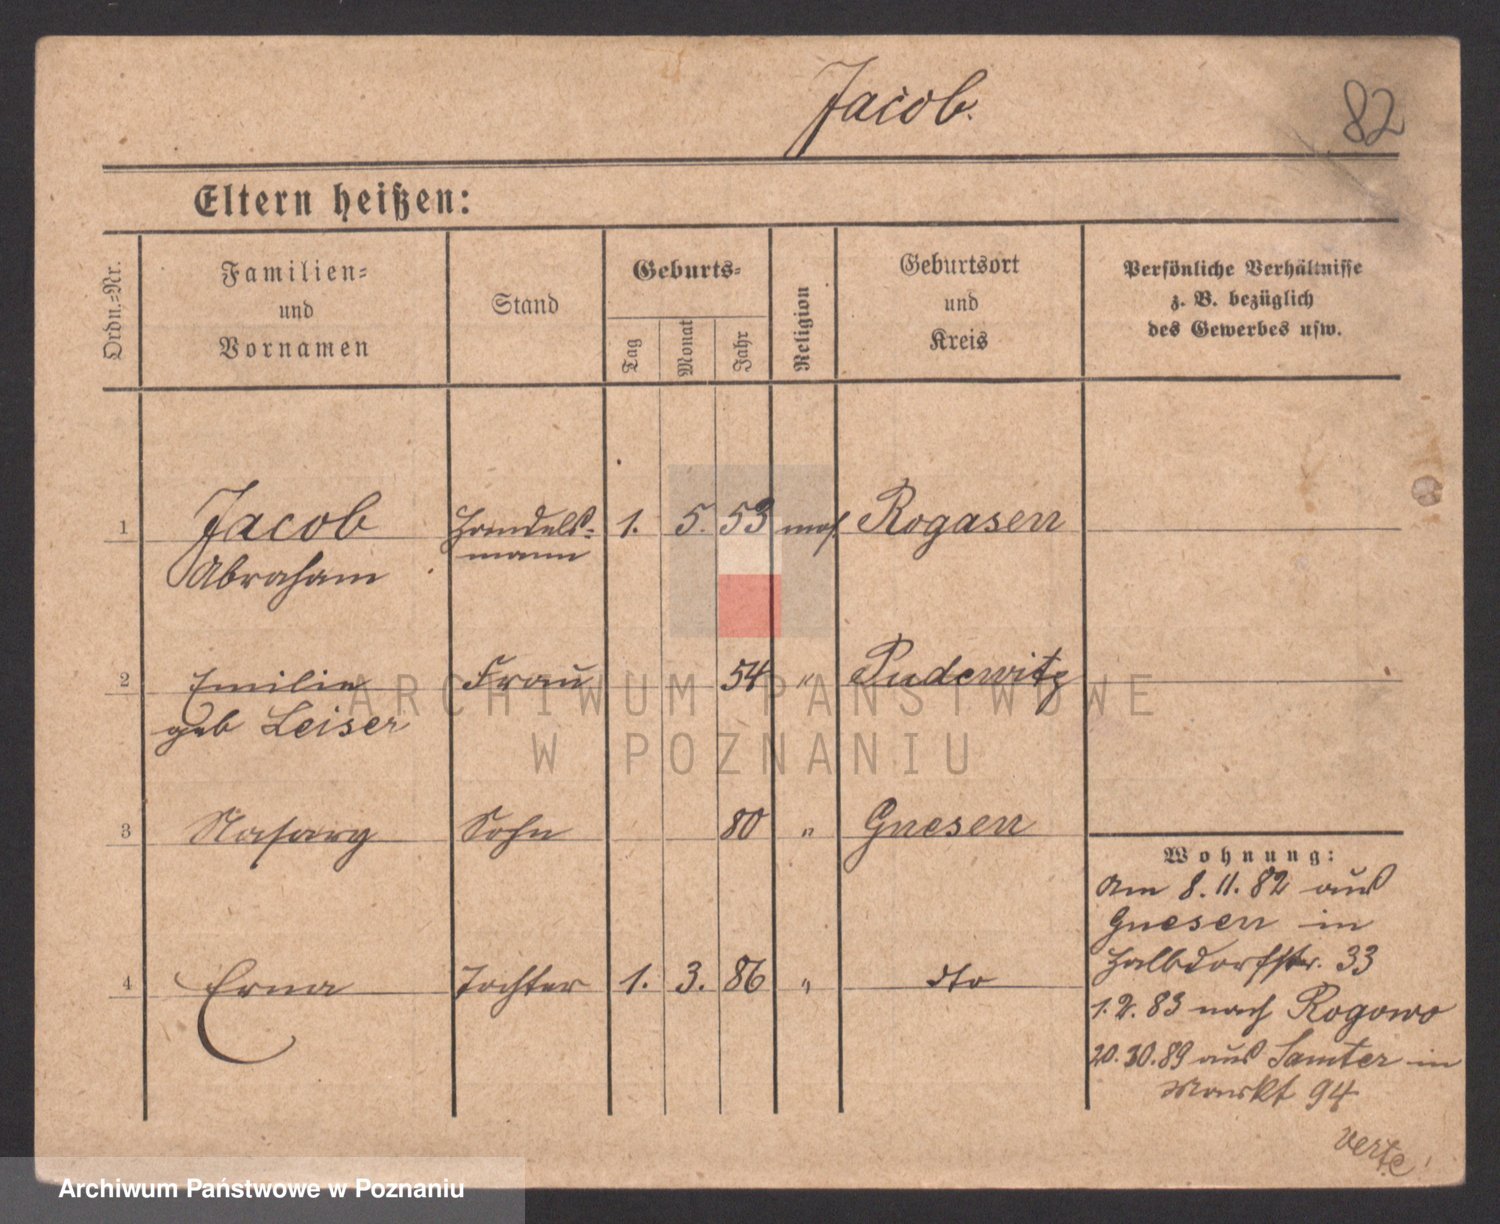 Jacob.
82
Eltern heißen:
Ordn.-Nr.
Familien-
und
Vornamen
Stand
Geburts-
Tag
Monat
Jahr
Religion
Geburtsort
und
Kreis
Persönliche Verhältnisse
z. B. bezüglich
des Gewerbes usw.
1 Jacob Handels- 1. 5. 53 mos. Rogasen
Abraham mann
2 Emilie Frau 54 " Pudewitz
geb Leiser
3 Sohn 80 " Gnesen
4 Erna Tochter 1. 3. 86 " dto
Wohnung:
Am 8.11.82 aus
Gnesen in
Halbdorfstr. 33
83 nach Rogowo
89 aus Samter in
Markt 94
verte!
ARCHIWUM PAŃSTWOWE
W POZNANIU
Archiwum Państwowe w Poznaniu